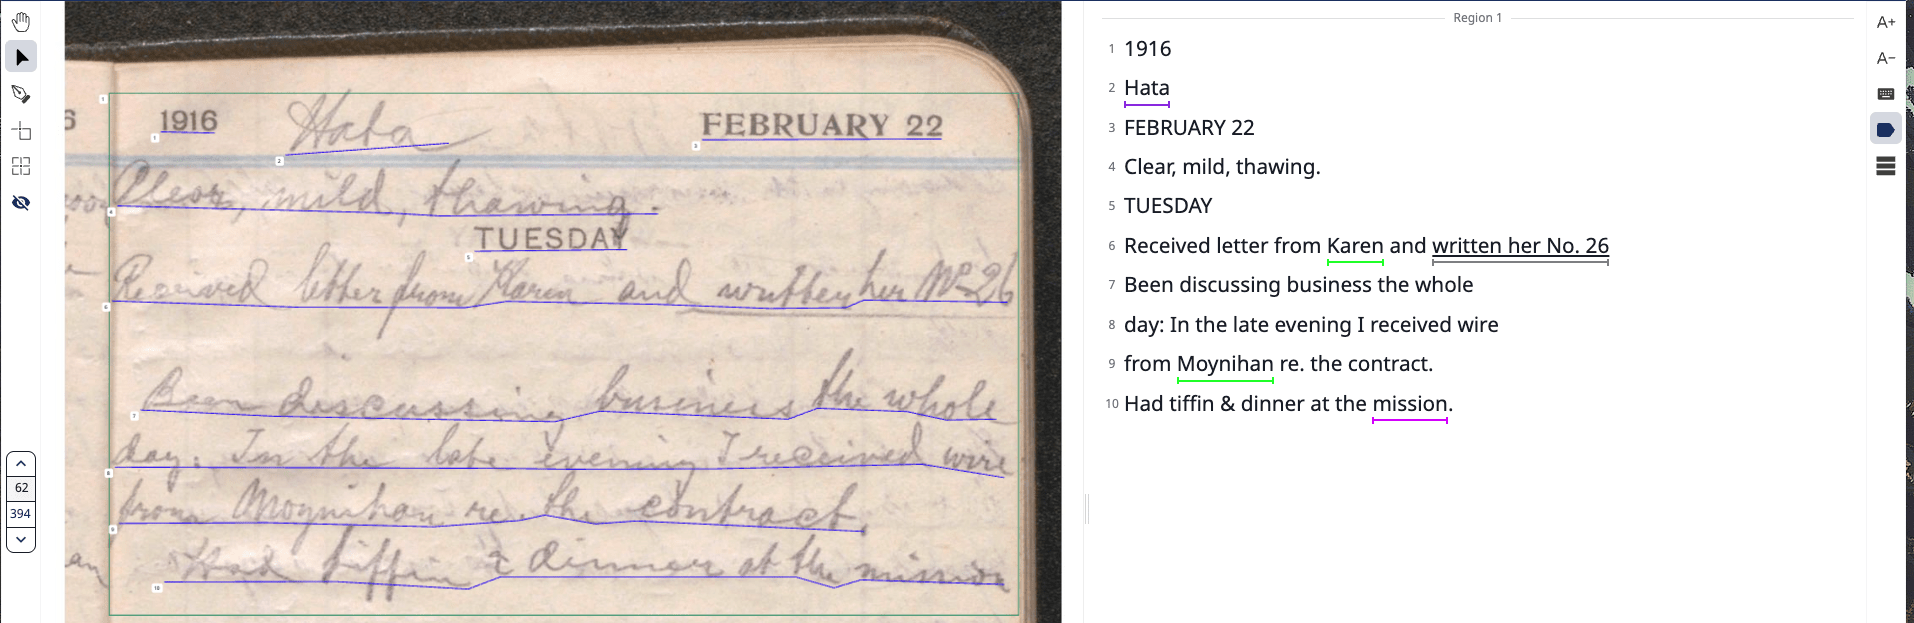 Region 1
6 1916 Hata FEBRUARY 22
Clear, mild, thawing.
TUESDAY
Received letter from Karen and written her No 26
Been discussing business the whole
day: In the late evening I received wire
from Moynihan re. the contract.
Had tiffin & dinner at the mission
1 1916
2 Hata
3 FEBRUARY 22
4 Clear, mild, thawing.
5 TUESDAY
6 Received letter from Karen and written her No. 26
7 Been discussing business the whole
8 day: In the late evening I received wire
9 from Moynihan re. the contract.
10 Had tiffin & dinner at the mission.
A+
A−
62
394